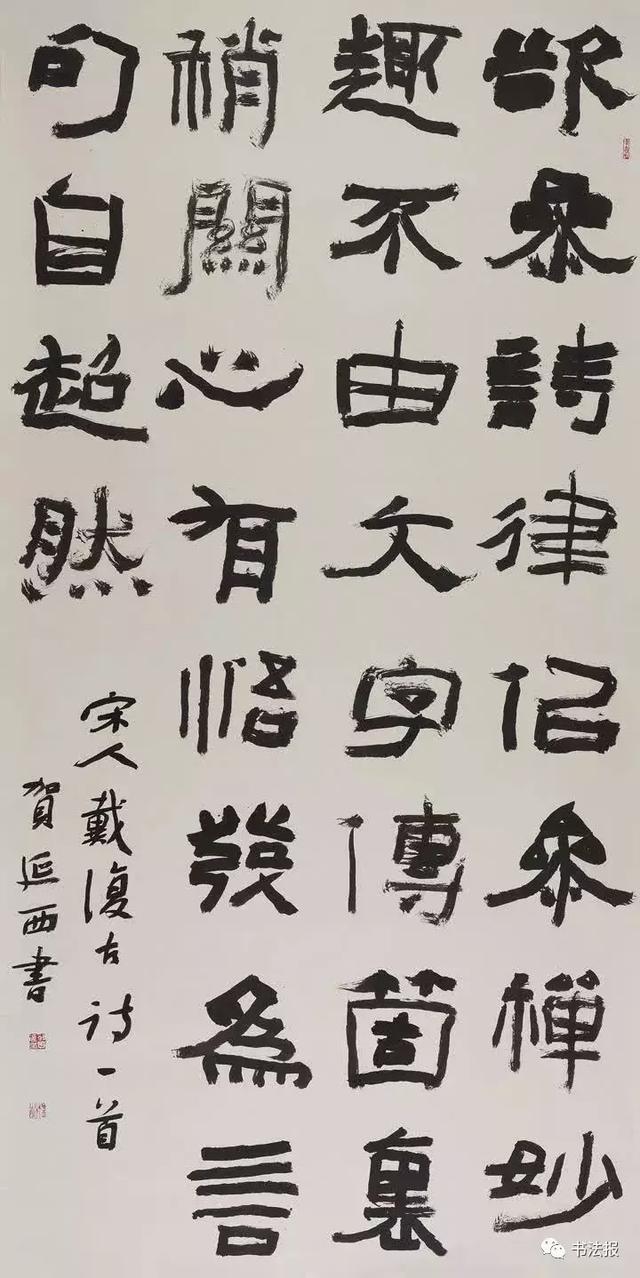 欲參詩律佀參禪妙
趣不由文字傳箇裏
稍關心有悟發為言
句自超然
宋人戴復古诗一首
賀延西書
书法报